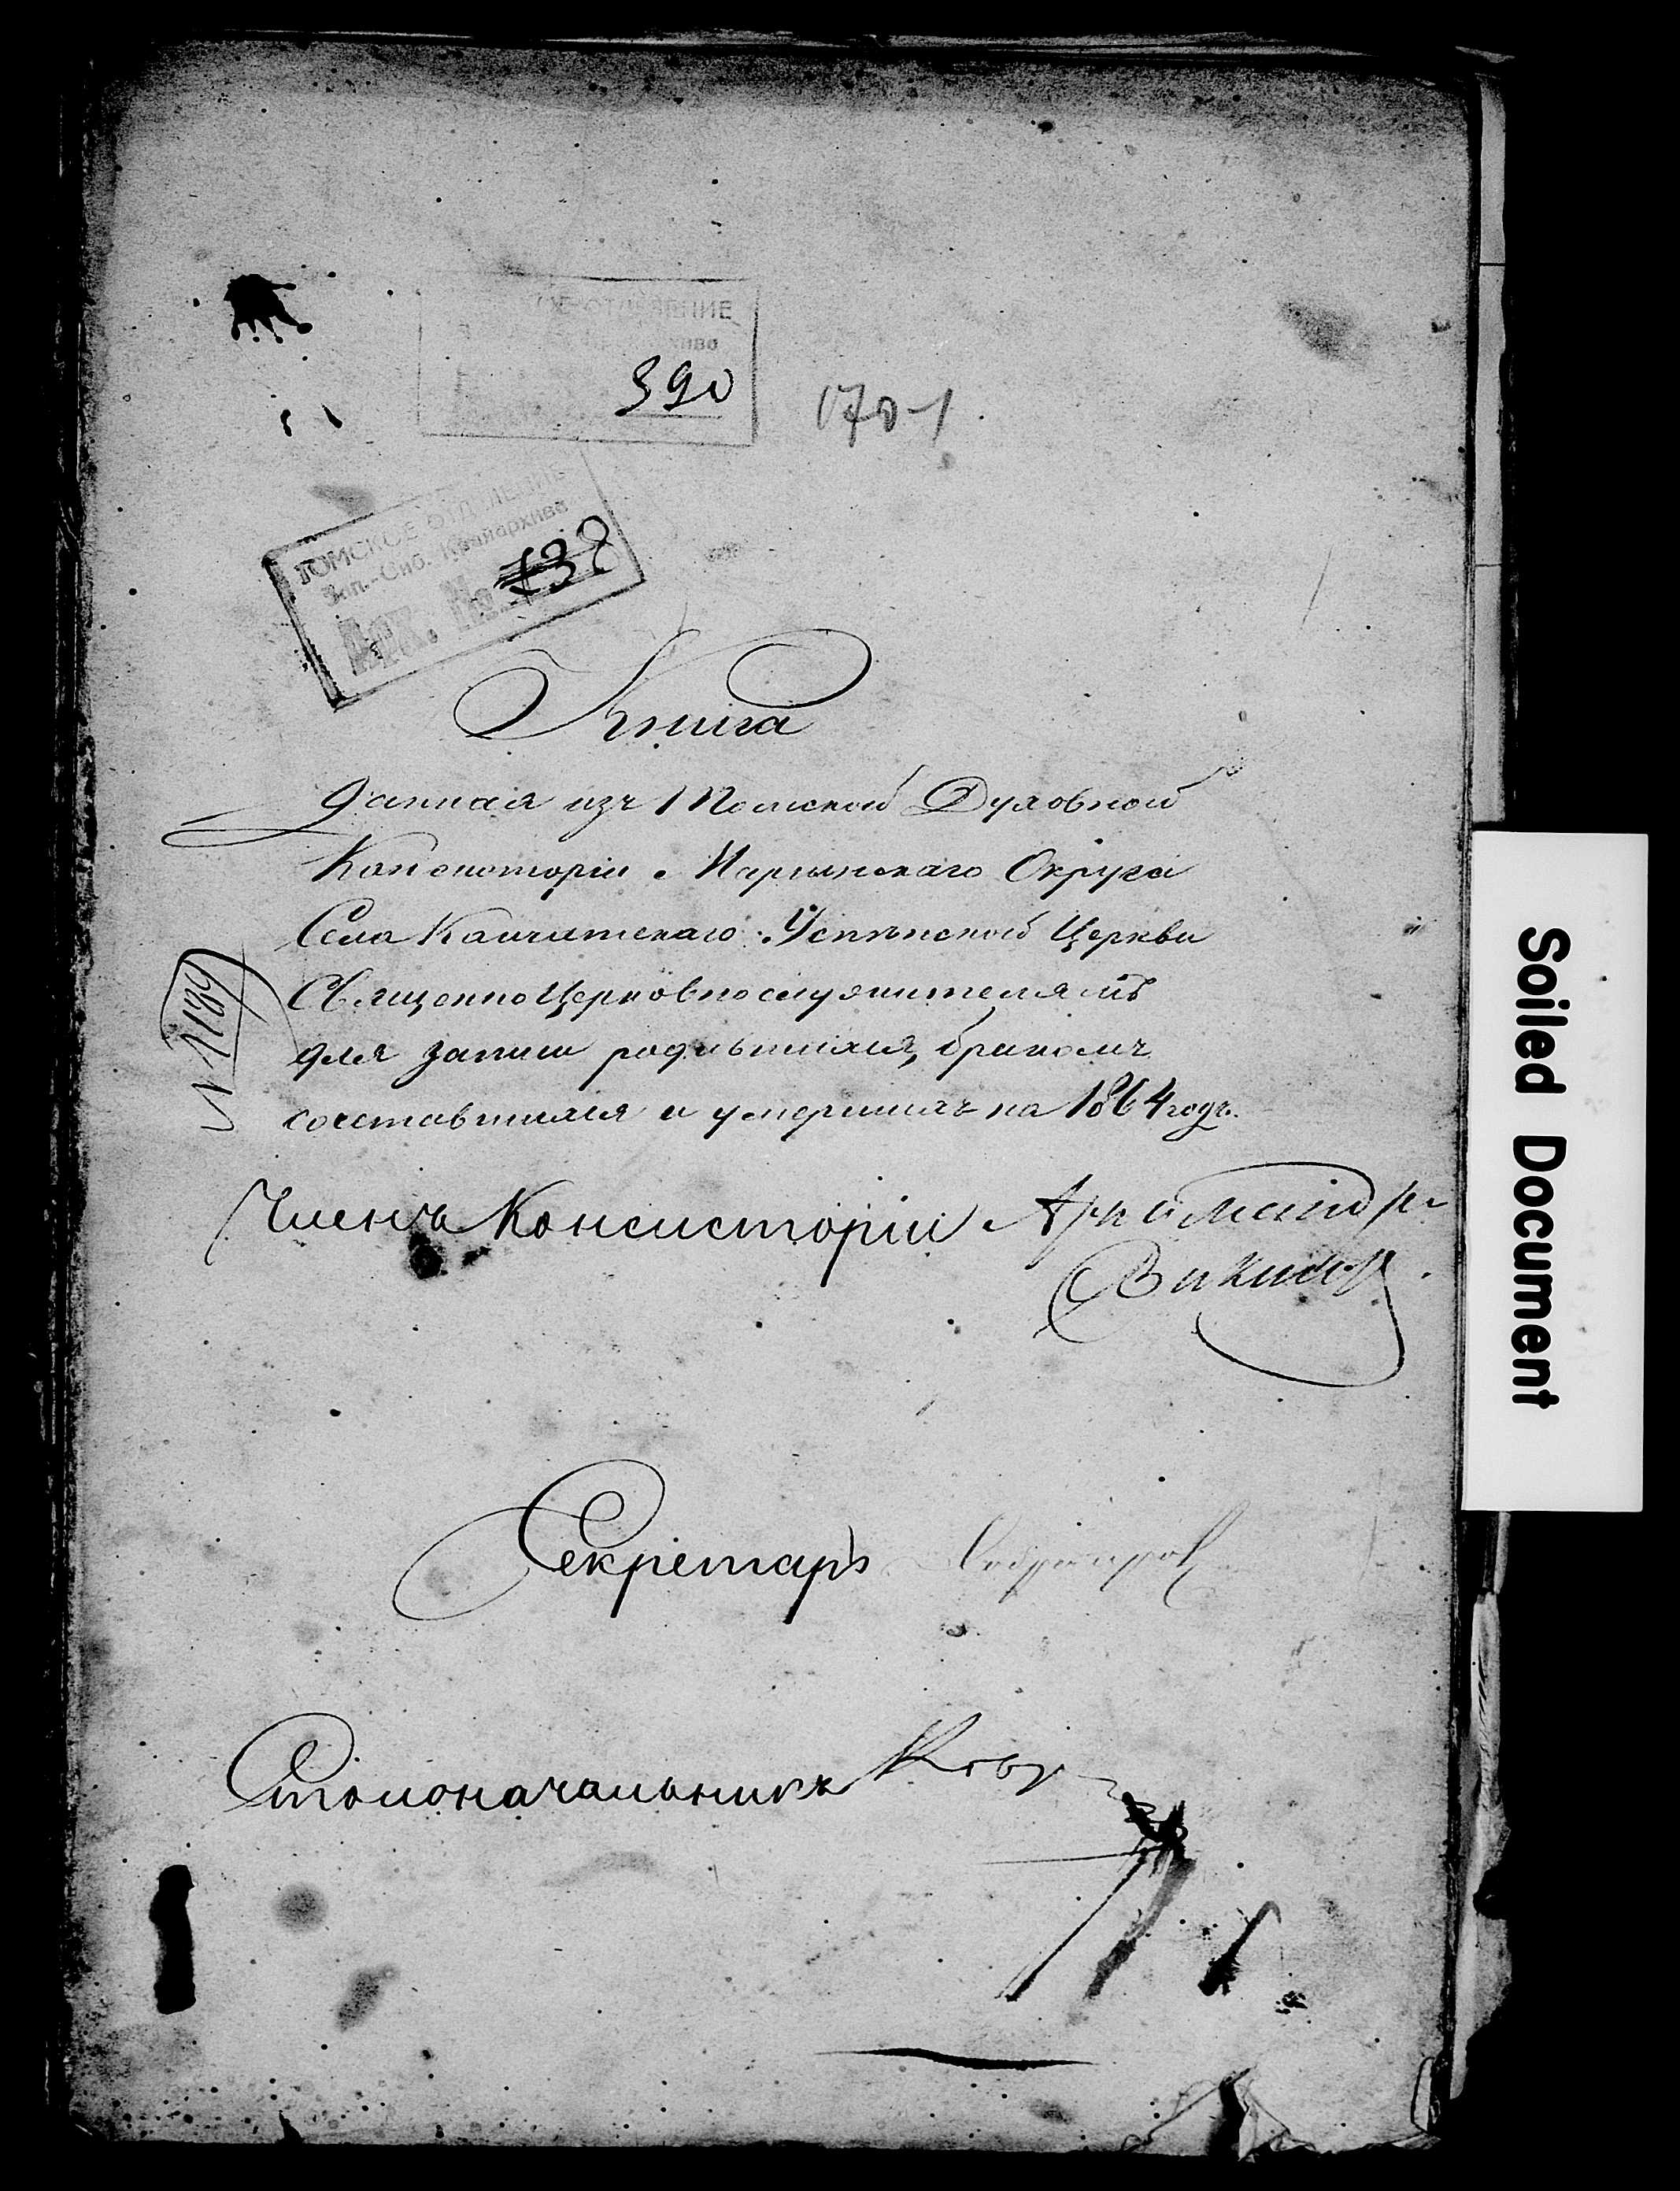 ОТДЕЛЕНИЕ
390
170-1
ТОМСКОЕ ОТДЕЛЕНИЕ
Зап.-Сиб. Крайархива
Арх. №
138
Книга
данная изъ Томской Духовной
Консисторіи Маріинскаго Округа
Села Камчатскаго Успенской Церкви
Священноцерковнослужителямъ
для записи родившихся, бракомъ
сочетавшихся и умершихъ на 1864 годъ.
N 1189
Членъ Консисторіи Архимандр
Викторъ
Секретарь
Столоначальникъ
Soiled Document